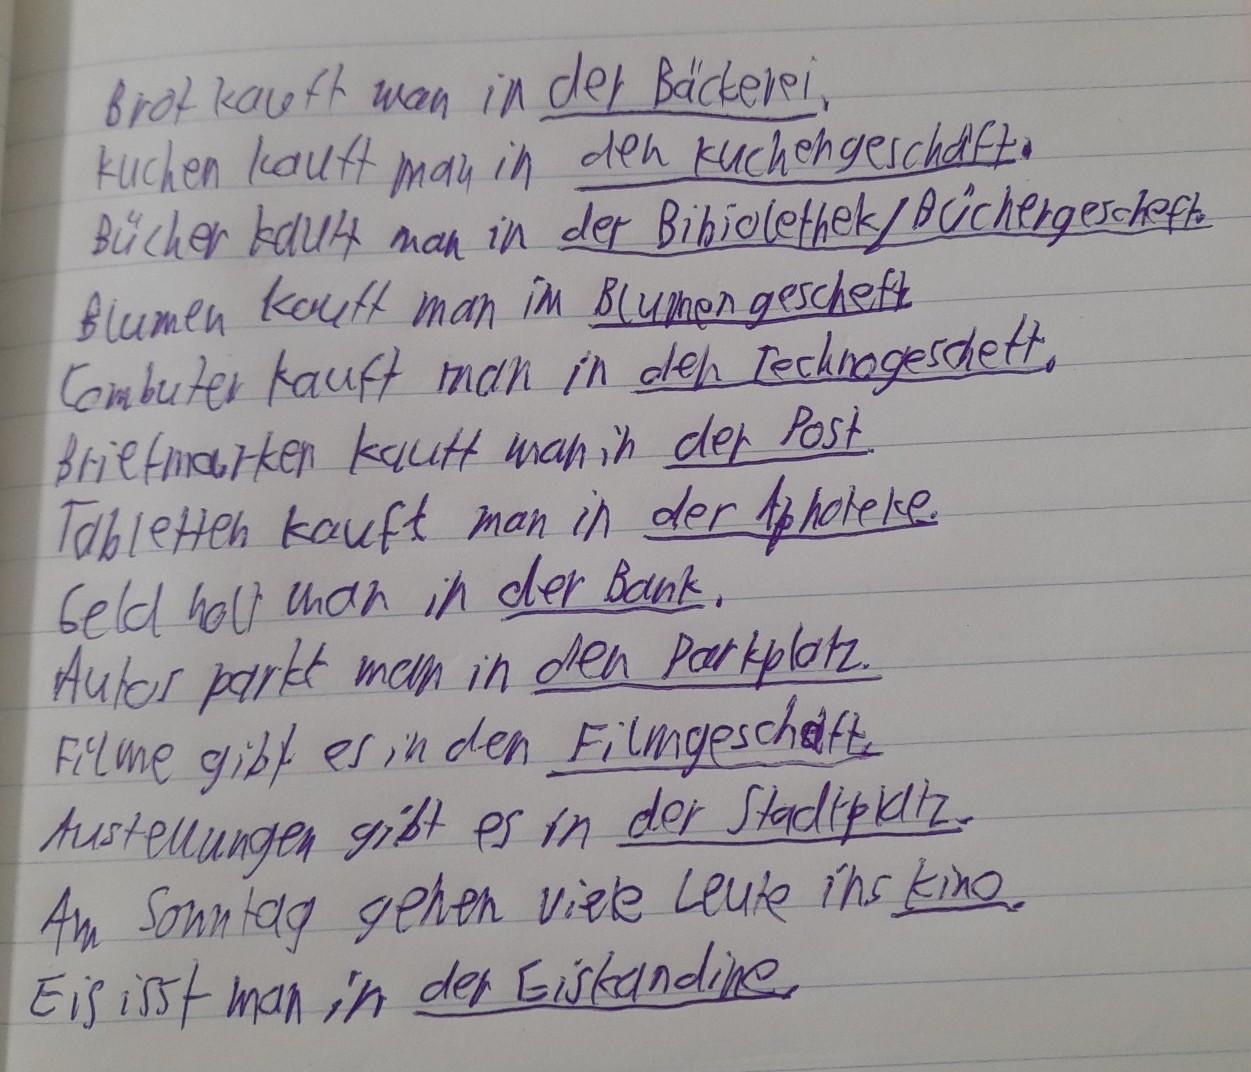 Brot kauft man in der Bäckerei.
Kuchen kauft man in den Kuchengeschäft.
Bücher kauft man in der Bibiolethek/Büchergescheft.
Blumen kauft man im Blumengescheft
Combuter kauft man in den Technogescheft.
Briefmarken kauft man in der Post.
Tabletten kauft man in der Aphoteke.
Geld holt man in der Bank.
Autos parkt man in den Parkplatz.
Filme gibt es in den Filmgeschäft.
Austellungen gibt es in der Stadtplatz.
Am Sonntag gehen viele Leute ins Kino.
Eis isst man in der Eiskandine.